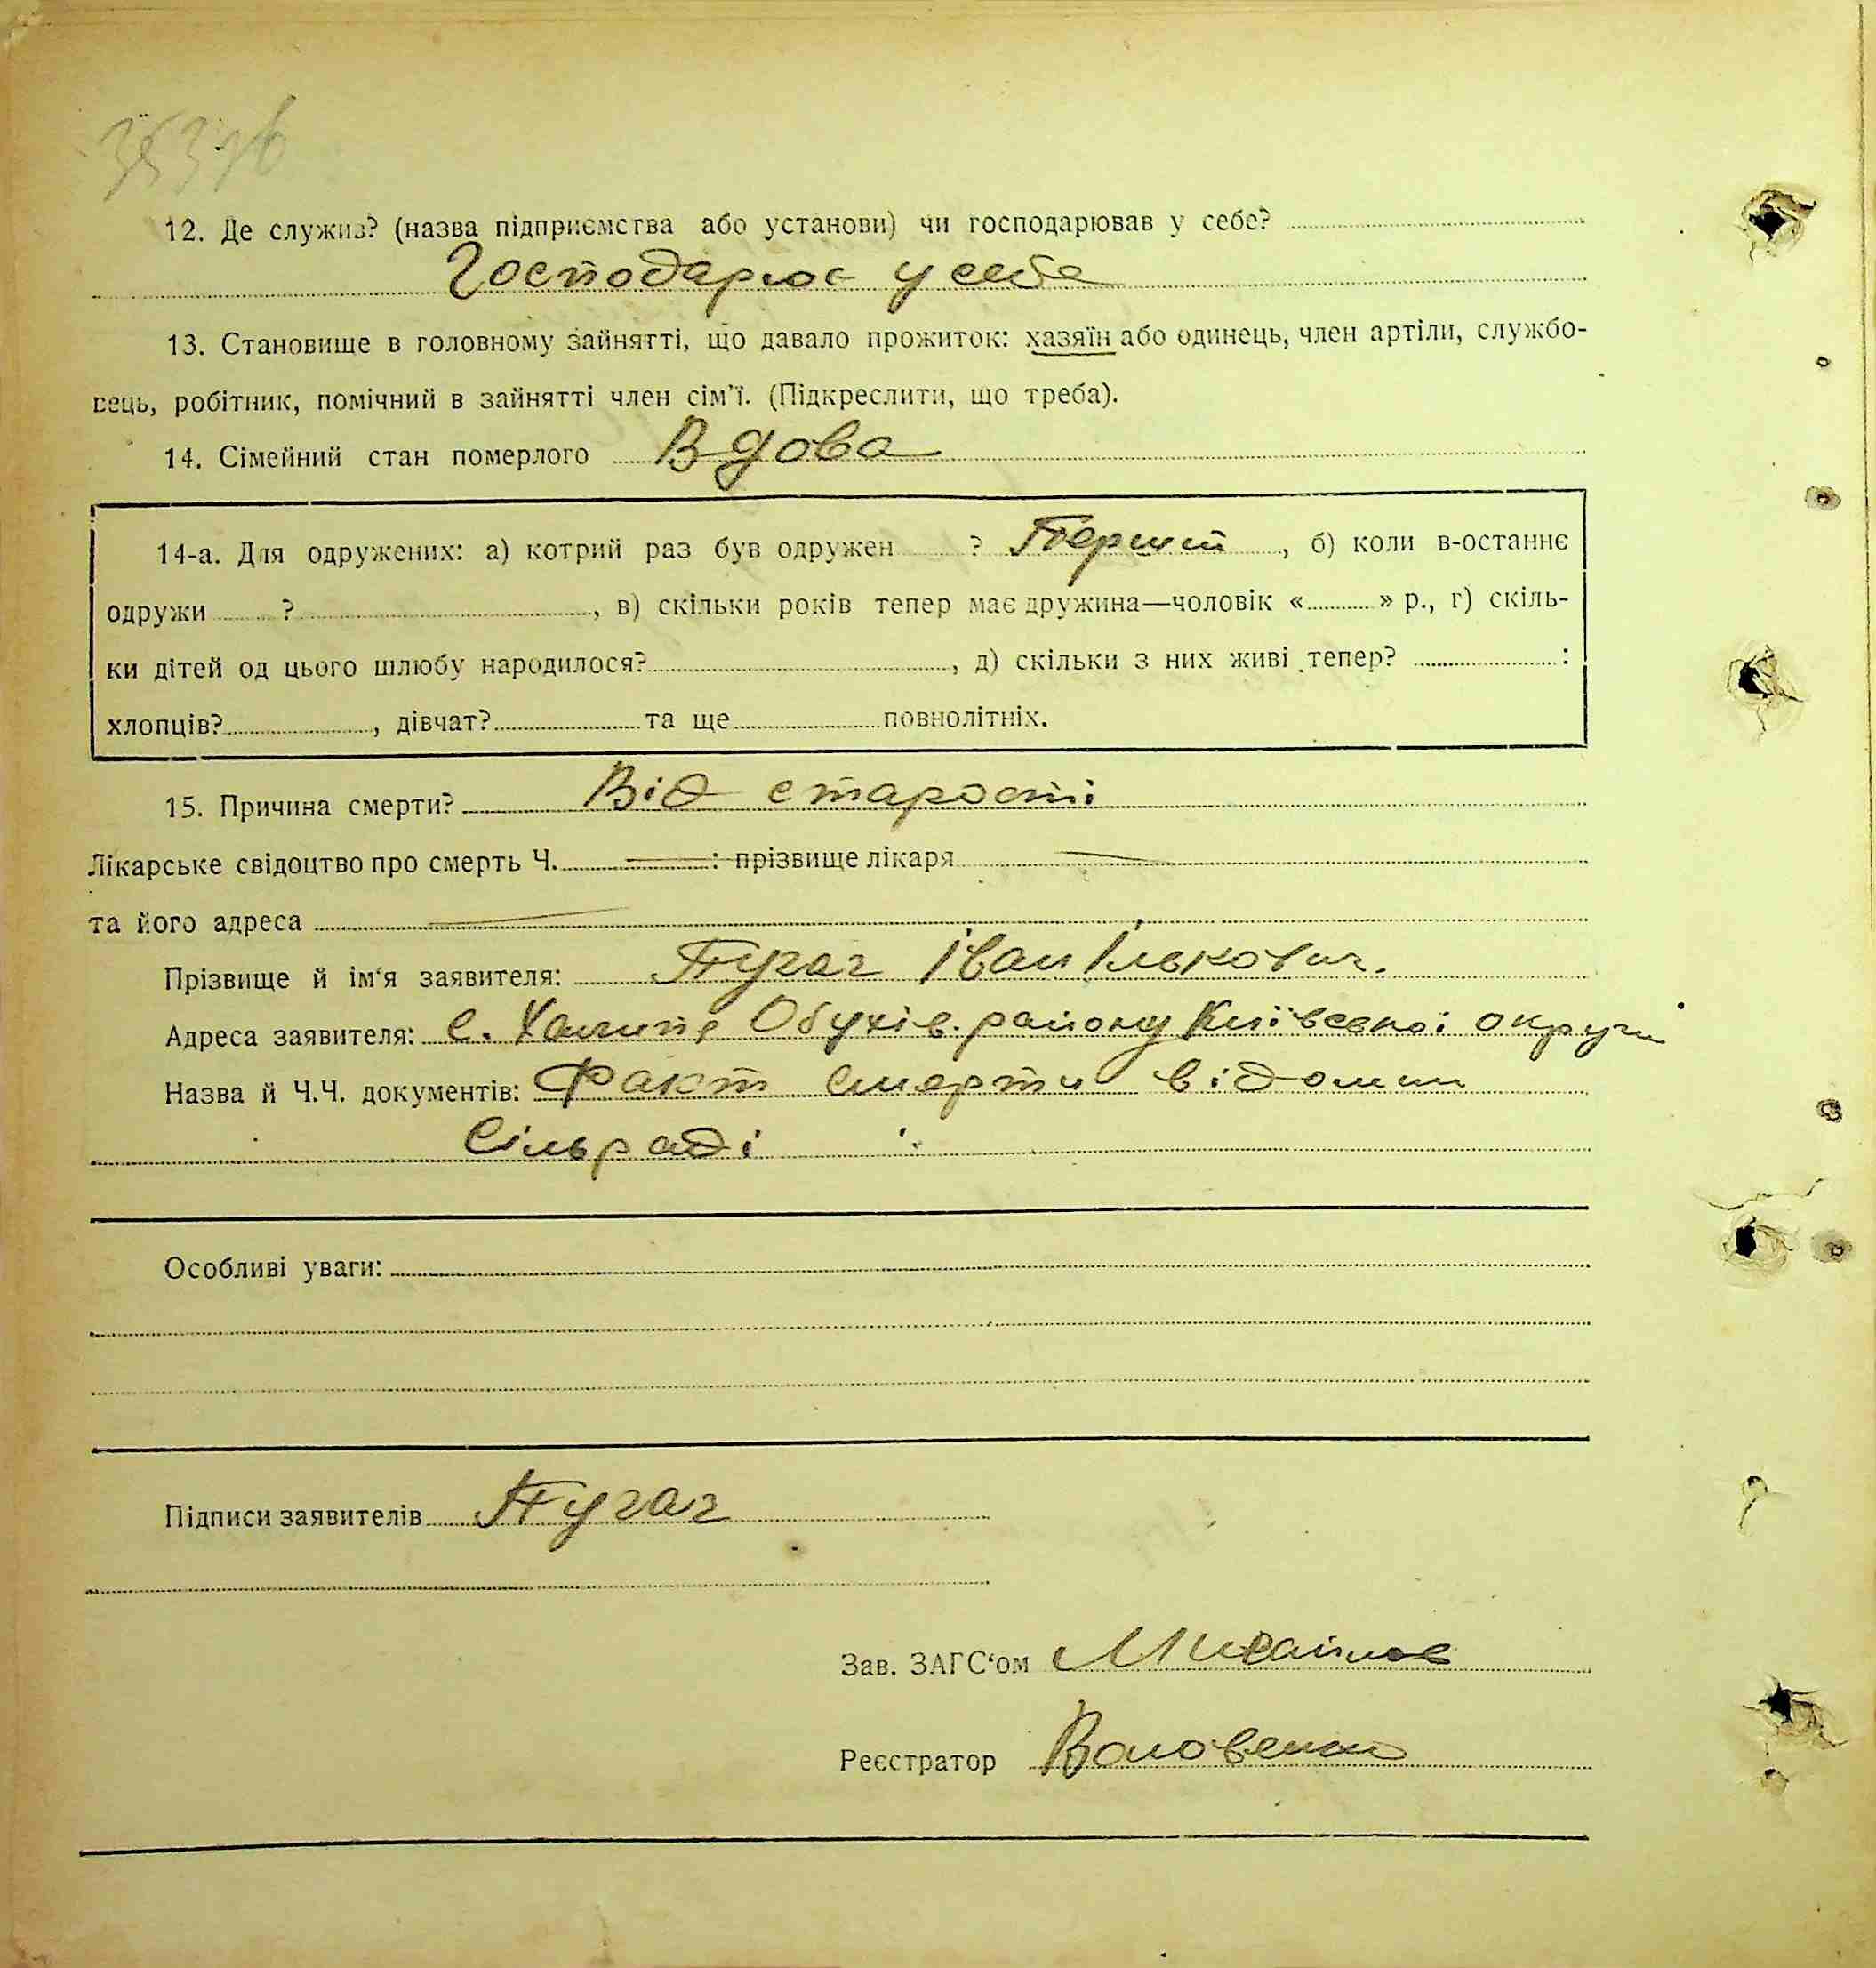 12. Де служив? (назва підприємства або установи) чи господарював у себе?
Господарює у себе
13. Становище в головному зайнятті, що давало прожиток: хазяїн або одинець, член артіли, службо-
вець, робітник, помічний в зайнятті член сім'ї. (Підкреслити, що треба).
14. Сімейний стан померлого Вдова
14-а. Для одружених: а) котрий раз був одружен ? Перший, б) коли в-останнє
одружи ? , в) скільки років тепер має дружина—чоловік « » р., г) скіль-
ки дітей од цього шлюбу народилося? , д) скільки з них живі тепер? :
хлопців? , дівчат? та ще повнолітніх.
15. Причина смерти? Від старости
Лікарське свідоцтво про смерть Ч. : прізвище лікаря
та його адреса
Прізвище й ім'я заявителя: Пугач Іван Ількович.
Адреса заявителя: с. Халипя Обухів. району Київської округи
Назва й Ч.Ч. документів: Факт смерти відомий
Сільраді
Особливі уваги:
Підписи заявителів Пугач
Зав. ЗАГС'ом Михайлов
Реєстратор